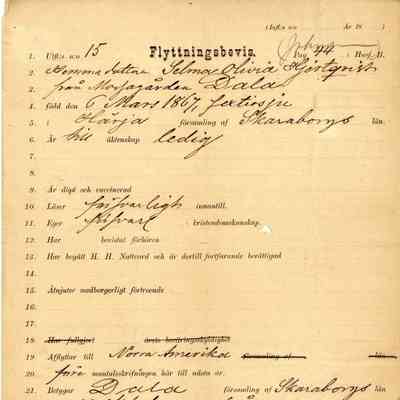 (Inft:s n:o    År 18    )
1. Utft:s n:o 15 Flyttningsbevis. Pag 44 i Husf. B.
2. Hemma dottren Selma Olivia Hjertqvist
3. från Dala
4. född den 6 Mars 1867 sextiosju
5. i Härja församling af Skaraborgs län.
6. Är till äktenskap ledig
7.
8.
9. Är döpt och vaccinerad
10. Läser försvarligt innantill.
11. Eger försvarl kristendomskunskap.
12. Har bevistat förhören
13. Har begått H. H. Nattvard och är dertill fortfarande berättigad
14.
15. Åtnjuter medborgerligt förtroende
16.
17.
18. Har fullgjort årets beväringsskyldighet
19. Afflyttar till Norra Amerika församling af län,
20. före mantalsskrifningen, hör till nästa år.
21. Betygar Dala församling af Skaraborgs